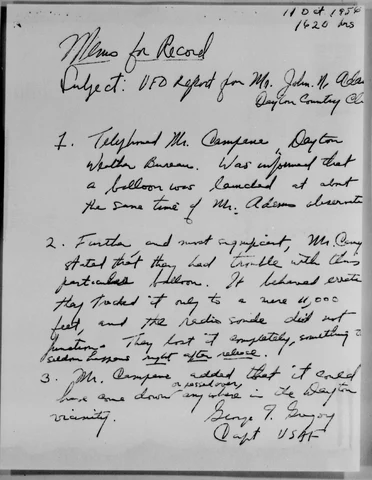 11 Oct 1956
1620 hrs
Memo for Record
Subject: UFO Report from Mr. John N. Adams
Dayton Country Clu
1. Telephoned Mr. Campene, Dayton
Weather Bureau. Was informed that
a balloon was launched at about
the same time of Mr. Adams observati
2. Further and most significant, Mr. Camp
stated that they had trouble with this
particular balloon. It behaved erratic
they tracked it only to a mere
feet, and the radio sonde did not
function. They lost it completely, something
seldom happens right after release.
3. Mr. Campene added that it could
or passed over
have come down anywhere in the Dayton
vicinity.
George T. Gregory
Capt USAF